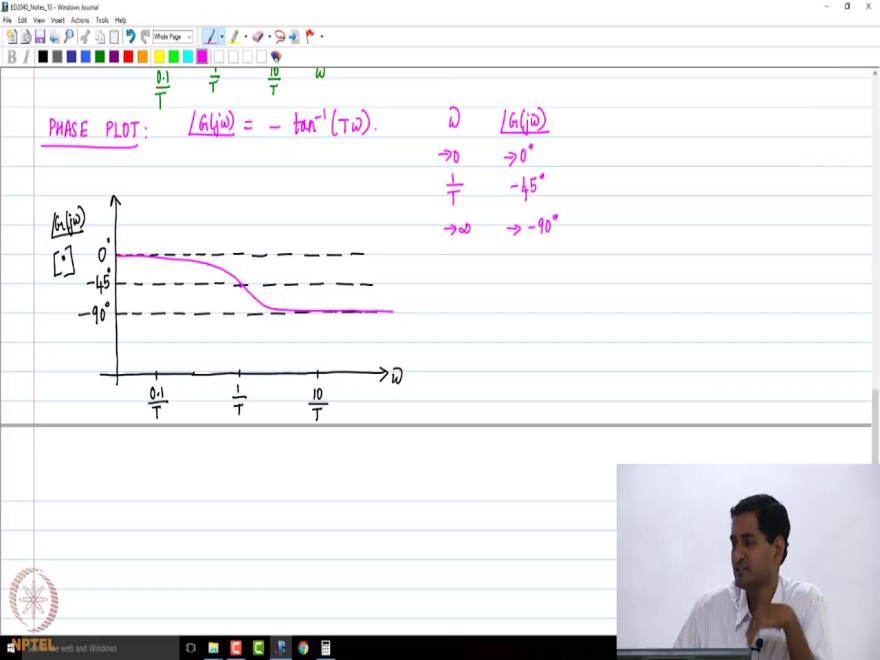 ED2040_Notes_10 - Windows Journal
File Edit View Insert Actions Tools Help
Whole Page
B I
0.1/T 1/T 10/T ω
PHASE PLOT: ∠G(jω) = - tan⁻¹(Tω). ω ∠G(jω)
→0 →0°
1/T -45°
→∞ → -90°
∠G(jω)
[°]
0°
-45°
-90°
0.1/T 1/T 10/T ω
NPTEL
the web and Windows